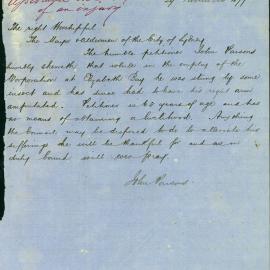 of an injury
The right Worshipful
The Mayor & Aldermen of the City of Sydney
The humble petitioner John Parsons
humbly sheweth that while in the employ of the
Corporation at Elizabeth Bay he was stung by some
insect and has since had to have his right arm
amputated. Petitioner is 60 years of age and has
no means of obtaining a livelihood. Anything
the Council may be disposed to do to alleviate his
sufferings he will be thankful for and as in
duty bound will ever pray.
John Parsons